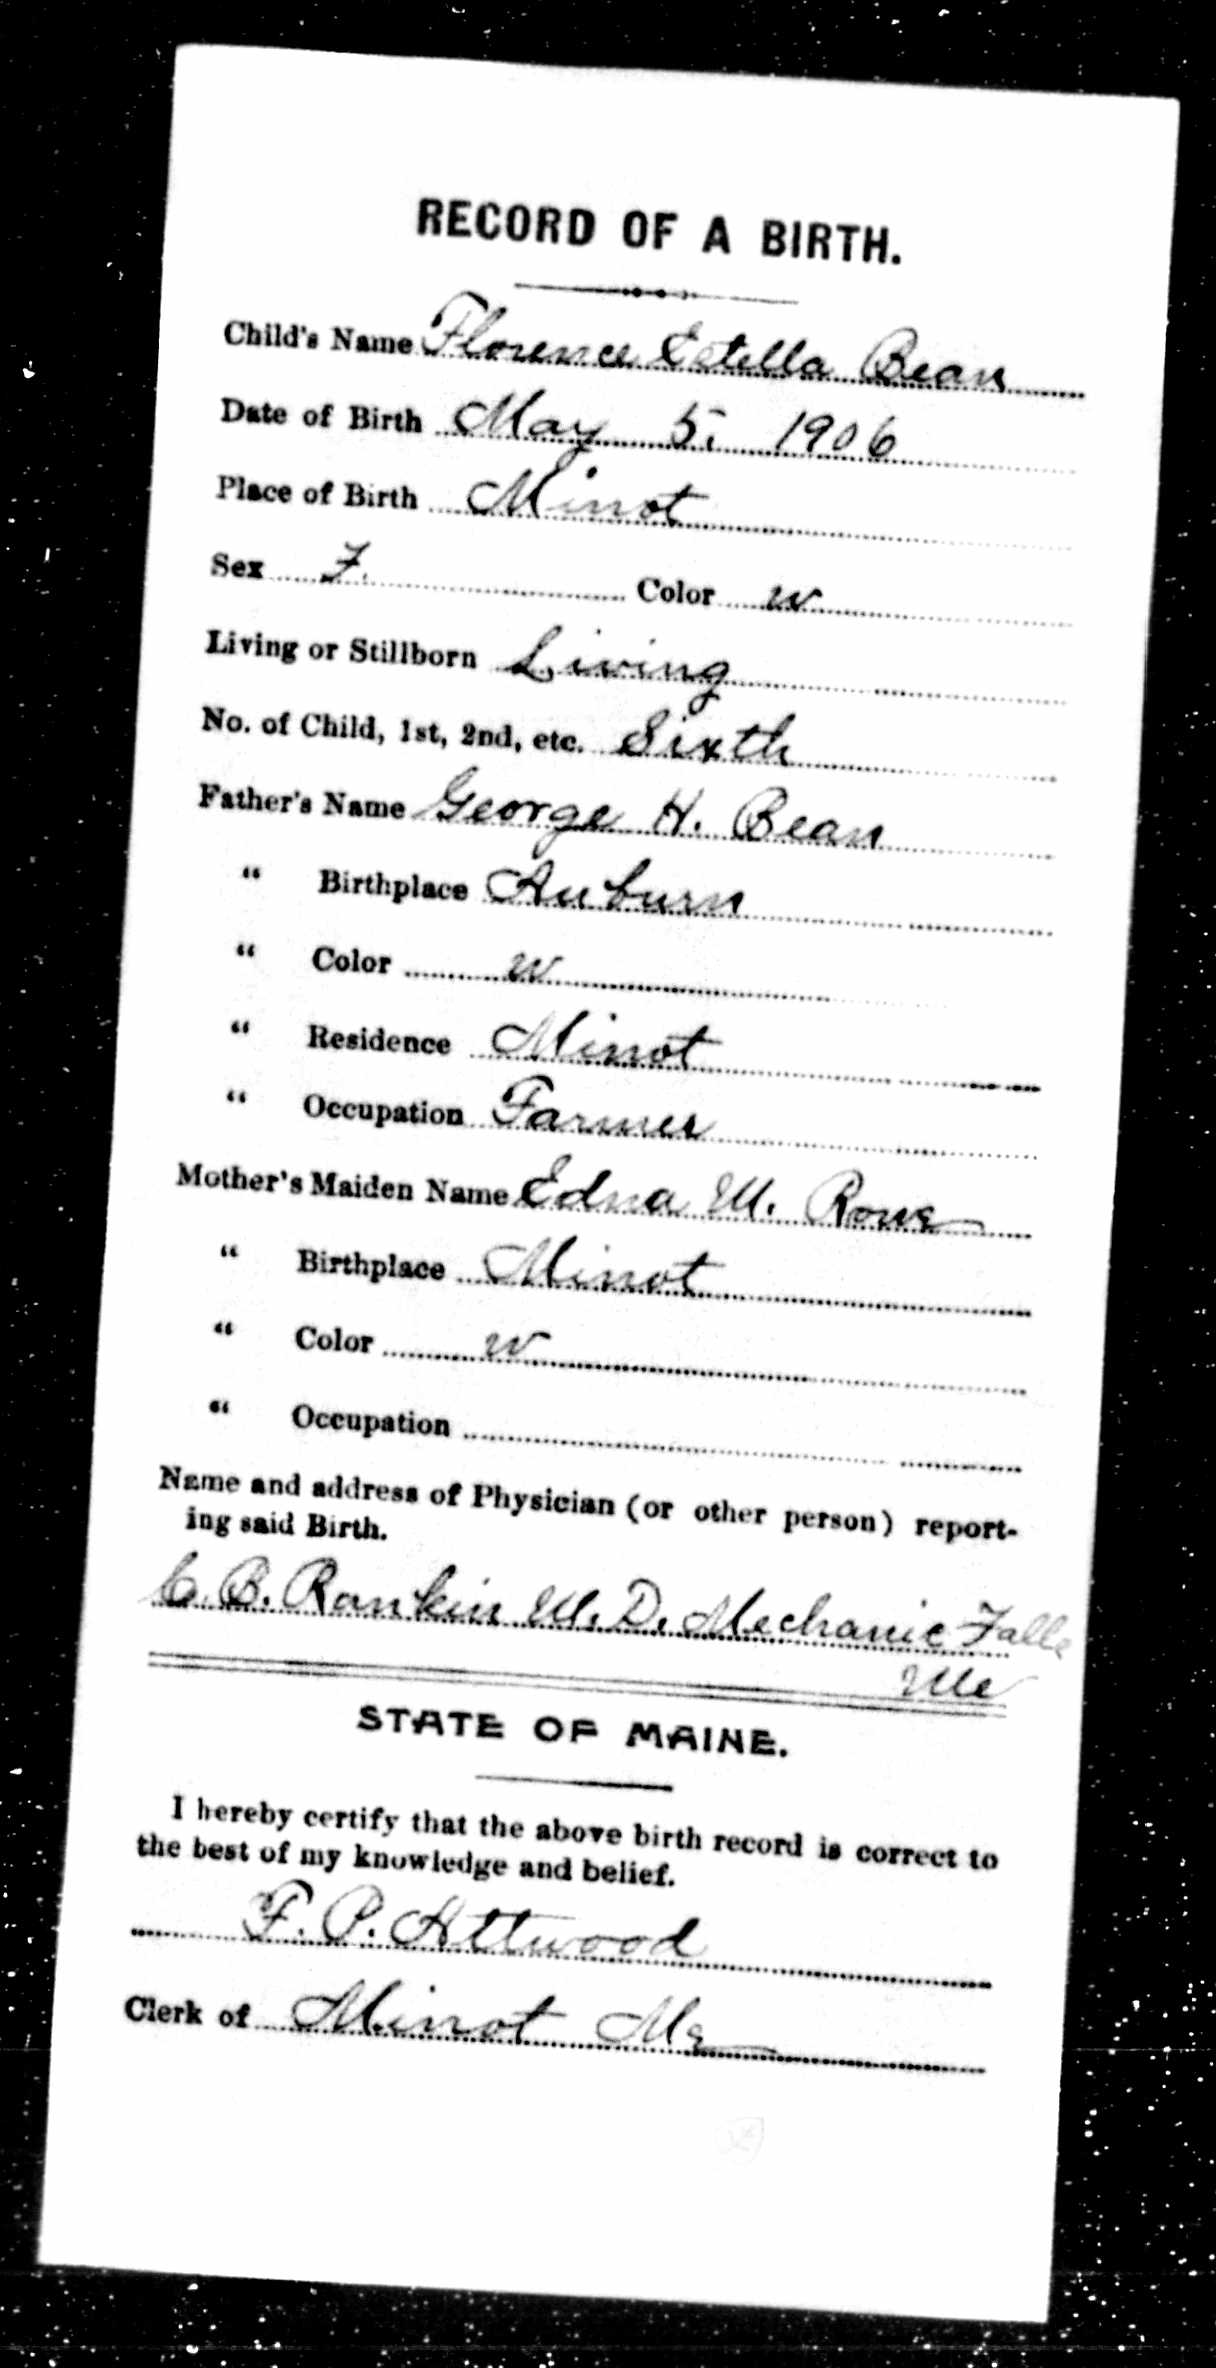 RECORD OF A BIRTH.
Child's Name Florence Estella Bean
Date of Birth May 5. 1906
Place of Birth Minot
Sex F. Color w
Living or Stillborn Living
No. of Child, 1st, 2nd, etc. Sixth
Father's Name George H. Bean
“ Birthplace Auburn
“ Color w
“ Residence Minot
“ Occupation Farmer
Mother's Maiden Name Edna M. Rowe
“ Birthplace Minot
“ Color w
“ Occupation
Name and address of Physician (or other person) report-
ing said Birth.
C. B. Rankin M. D. Mechanic Falls
Me
STATE OF MAINE.
I hereby certify that the above birth record is correct to
the best of my knowledge and belief.
F. P. Attwood
Clerk of Minot Me